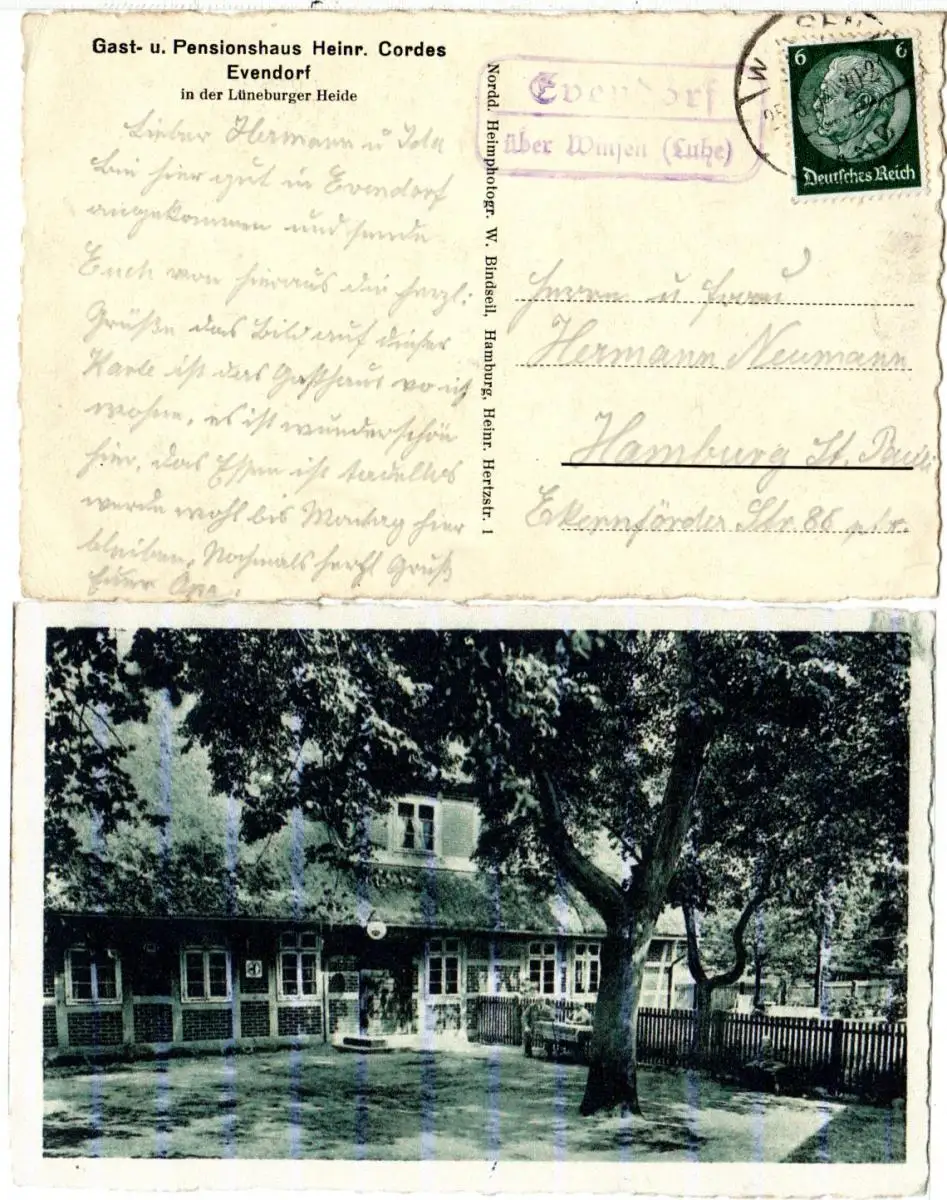 Gast- u. Pensionshaus Heinr. Cordes
Evendorf
in der Lüneburger Heide
Lieber Hermann u Ida
bin hier gut in Evendorf
angekommen und sende
Euch von hieraus die herzl.
Grüße das Bild auf dieser
Karte ist das Gasthaus wo ich
wohne, es ist wunderschön
hier, das Essen ist tadellos
werde wohl bis Montag hier
bleiben, Nochmals herzl Gruß
Euer Opa.
Nordd. Heimphotogr. W. Bindseil, Hamburg, Heinr. Hertzstr. 1
Evendorf
über Winsen (Luhe)
6 6
Deutsches Reich
Herrn u Frau
Hermann Neumann
Hamburg St. Pauli
Ekernförder Str. 86 ptr.